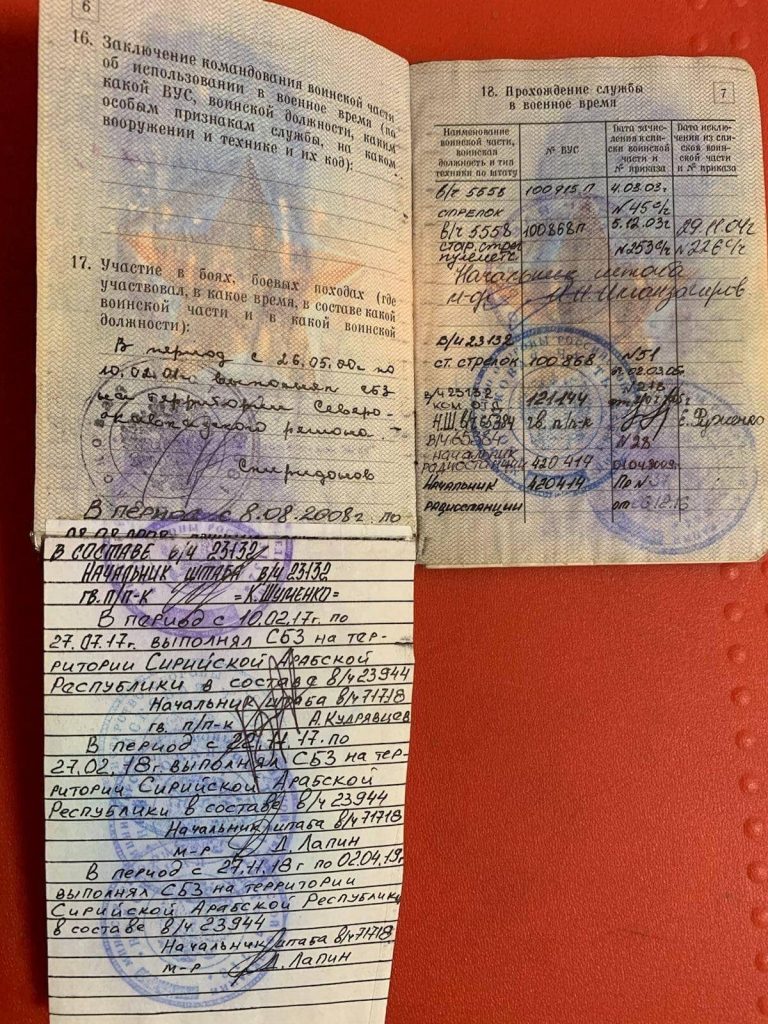 6
16. Заключение командования воинской части
об использовании в военное время (по
какой ВУС, воинской должности, каким
особым признакам службы, на каком
вооружении и технике и их код):
17. Участие в боях, боевых походах (где
участвовал, в какое время, в составе какой
воинской части и в какой воинской
должности):
В период с 26.05.00г по
10.02.01г выполнял СБЗ
на территории Северо-
кавказского региона.
Спиридонов
В период с 8.08.2008г. по
в составе в/ч 23132
начальник штаба в/ч 23132
гв. п/п-к =К.Шиченко=
В период с 10.02.17г. по
27.07.17г. выполнял СБЗ на тер-
ритории Сирийской Арабской
Республики в составе в/ч 23944
Начальник штаба в/ч 71718
гв. п/п-к А.Кудрявцев
В период с 22.11.17. по
27.02.18г. выполнял СБЗ на тер-
ритории Сирийской Арабской
Республики в составе в/ч 23944
Начальник штаба в/ч 71718
м-р Д. Лапин
В период с 27.11.18г по 02.04.19г
выполнял СБЗ на территории
Сирийской Арабской Республики
в составе в/ч 23944
Начальник штаба в/ч 71718
м-р Д. Лапин
7
18. Прохождение службы
в военное время
Наименование воинской части, воинская должность и тип техники по штату
№ ВУС
Дата зачисления в списки воинской части и № приказа
Дата исключения из списков воинской части и № приказа
в/ч 5558 100915 П 4.03.03г.
стрелок №45с/ч
в/ч 5558 100868П 5.12.03г 29.11.04г
стар. стрел №253с/ч №226с/ч
пулеметч.
Начальник штаба
п-к
в/ч 23132
ст. стрелок 100868 №51
02.03.05
в/ч 23132 121144 №218
ком. отр.
Н.Ш. в/ч 65384 гв. п/п-к
в/ч 65384 №28
начальник
радиостанции 420414 01.04.2009г.
начальник 420414
радиостанции